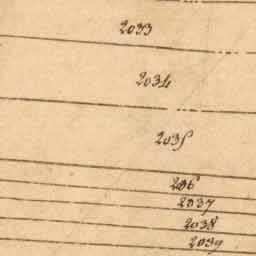 2033
2034
2035
206
2037
2038
2039